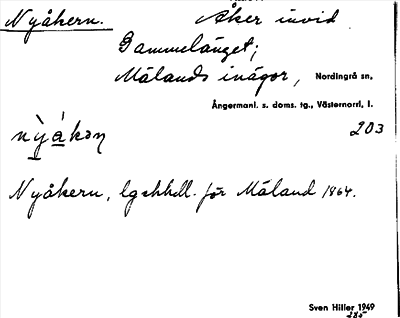 Nyåkern. Åker invid
Gammelänget;
Mälands inägor, Nordingrå sn,
Ångermanl. s. doms. tg., Västernorrl. l.
203
Nyåkern, lgskhdl. för Mäland 1864.
Sven Hiller 1949